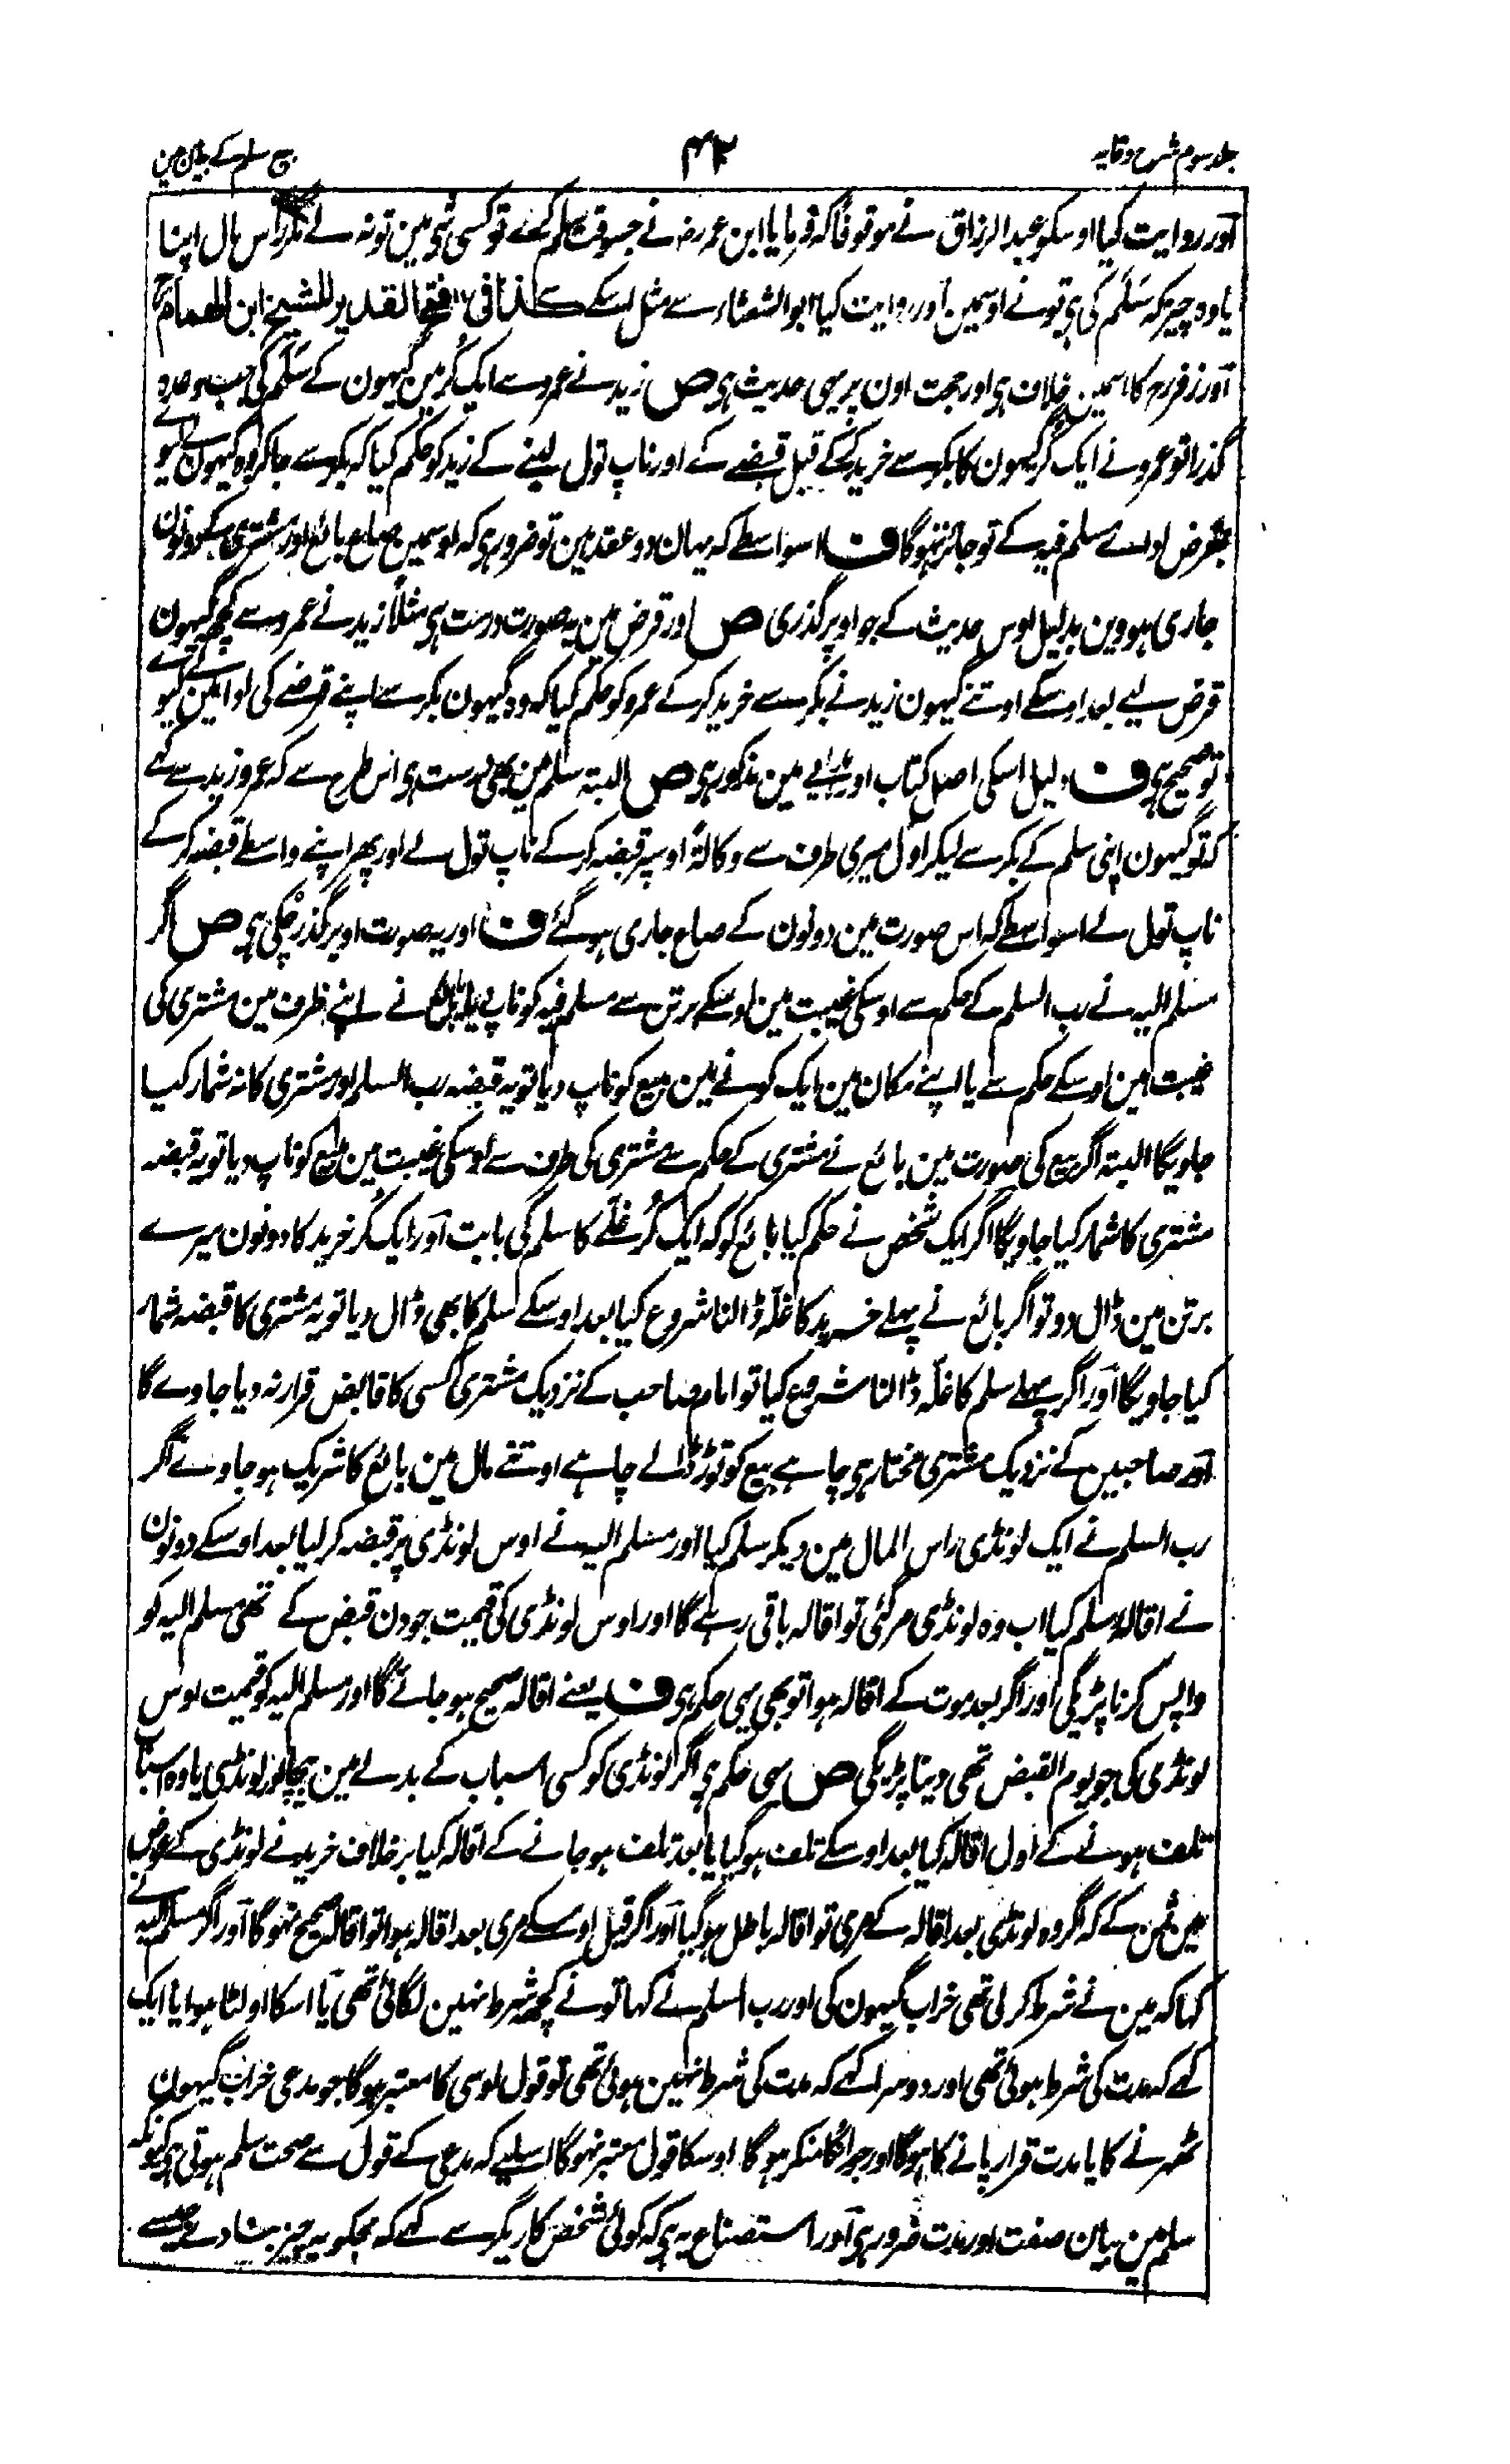 جلد سوم شرح وقایہ
۴۲
بیع سلم کے بیان مین
اور روایت کیا اوسکو عبدالرزاق نے موقوفًا کہ فرمایا ابن عمر رضہ نے جسوقت سلم کرے تو کسی شی مین تو نہ لے مگر راس مال اپنا
یا وہ چیز کہ سَلَم کی ہی تونے اوسمین اور روایت کیا ابوالشعثاء سے مثل اسکے کذا فی فتح القدیر للشیخ ابن الھمام
اور زفررہ کا اسمین خلاف ہی اور حجت اون پر یہی حدیث ہی ص زید نے عمرو سے ایک کُر مین گیہون کے سَلَم کی جب وعدہ
گذرا تو عمرو نے ایک کر گیہون کا بکر سے خرید کے قبل قبضے کے اور ناپ تول لینے کے زید کو حکم کیا کہ بکر سے جا کر وہ گیہون لے لیوے
بعوض اوسے مسلم فیہ کے تو جائز نہوگا ف اسواسطے کہ یہان دو عقد مین تو ضرور ہی کہ اوسمین صاع بائع اور مشتری کے دونون
جاری ہووین بدلیل اوس حدیث کے جو اوپر گذری ص اور قرض مین یہ صورت درست ہی مثلًا زید نے عمرو سے کچھ گیہون
قرض لیے بعد اوسکے اوتنے گیہون زید نے بکر سے خرید کر کے عمرو کو حکم کیا کہ وہ گیہون بکر سے اپنے قرضے کی ادا مین لے لیوے
تو صحیح ہی ف دلیل اسکی اصل کتاب اور ہدایے مین مذکور ہی ص البتہ سلم مین بھی درست ہی اس طرح سے کہ عمرو زید سے کہے
کہ تو گیہون اپنی سلم کے بکر سے لیکر اول میری طرف سے وکالۃً اوسپر قبضہ کر کے ناپ تول لے اور پھر اپنے واسطے قبضہ کر کے
ناپ تول لے اسواسطے کہ اس صورت مین دونون کے صاع جاری ہوگئے ف اور یہ صورت اوپر گذر چکی ہی ص اگر
مسلم الیہ نے رب السلم کے حکم سے اوسکی غیبت مین اوسکے برتن سے مسلم فیہ کو ناپے یا بائع نے اپنے ظرف مین مشتری کی
غیبت مین اوسکے حکم سے یا اپنے مکان مین ایک کونے مین مبیع کو ناپ دیا تو یہ قبضہ رب السلم اور مشتری کا نہ شمار کیا
جاویگا البتہ اگر بیع کی صورت مین بائع نے مشتری کے حکم سے مشتری کی ظرف سے اوسکی غیبت مین مبیع کو ناپ دیا تو یہ قبضہ
مشتری کا شمار کیا جاویگا اگر ایک شخص نے حکم کیا بائع کو کہ ایک کُر غلّے کا سلم کی بابت اور ایک کُر خرید کا دونون میرے
برتن مین ڈال دو تو اگر بائع نے پہلے خرید کا غلّہ ڈالنا شروع کیا بعد اوسکے سلم کا بھی ڈال دیا تو یہ مشتری کا قبضہ شمار
کیا جاویگا اور اگر پہلے سلم کا غلّہ ڈالنا شروع کیا تو امام صاحب کے نزدیک مشتری کسی کا قابض قرار نہ دیا جاوے گا
اور صاحبین کے نزدیک مشتری مختار ہی چاہے بیع کو توڑ ڈالے چاہے اوتنے مال مین بائع کا شریک ہو جاوے اگر
رب السلم نے ایک لونڈی راس المال مین دیکر سلم کیا اور مسلم الیہ نے اوس لونڈی پر قبضہ کر لیا بعد اوسکے دونون
نے اقالہ سلم کیا اب وہ لونڈی مر گئی تو اقالہ باقی رہے گا اور اوس لونڈی کی قیمت جو دن قبض کے تھی مسلم الیہ کو
واپس کرنا پڑیگی اور اگر بعد موت کے اقالہ ہوا تو بھی یہی حکم ہی ف یعنے اقالہ صحیح ہو جائے گا اور مسلم الیہ کو قیمت اوس
لونڈی کی جو یوم القبض تھی دینا پڑیگی ص یہی حکم ہی اگر لونڈی کو کسی اسباب کے بدلے مین بیچا اور لونڈی یا وہ اسباب
تلف ہونے کے اول اقالہ کیا بعد اوسکے تلف ہو گیا یا بعد تلف ہو جانے کے اقالہ کیا برخلاف خریدنے لونڈی کے عوض
مین ثمن کے کہ اگر وہ لونڈی بعد اقالہ کے مری تو اقالہ باطل ہوگیا اور اگر قبل اوسکے مری بعد اقالہ ہوا تو اقالہ صحیح نہوگا اور اگر مسلم الیہ نے
کہا کہ مین نے شرط کر لی تھی خراب گیہون کی اور رب السلم نے کہا تونے کچھ شرط نہین لگائی تھی یا اسکا اولٹا ہوا یا ایک
کہے کہ مدت کی شرط ہوئی تھی اور دوسرا کہے کہ مدت کی شرط نہین ہوئی تھی تو قول اوسی کا معتبر ہوگا جو مدعی خراب گیہون
ٹھہرنے کا یا مدت قرار پانے کا ہوگا اور جو انکا منکر ہوگا اوسکا قول معتبر نہوگا اسلیے کہ مدعی کے قول سے صحت سلم ہوتی ہی کیونکہ
سلم مین بیان صفت اور مدت ضرور ہی اور استصناع یہ ہی کہ کوئی شخص کاریگر سے کہے کہ مجکو یہ چیز بنا دے جیسے